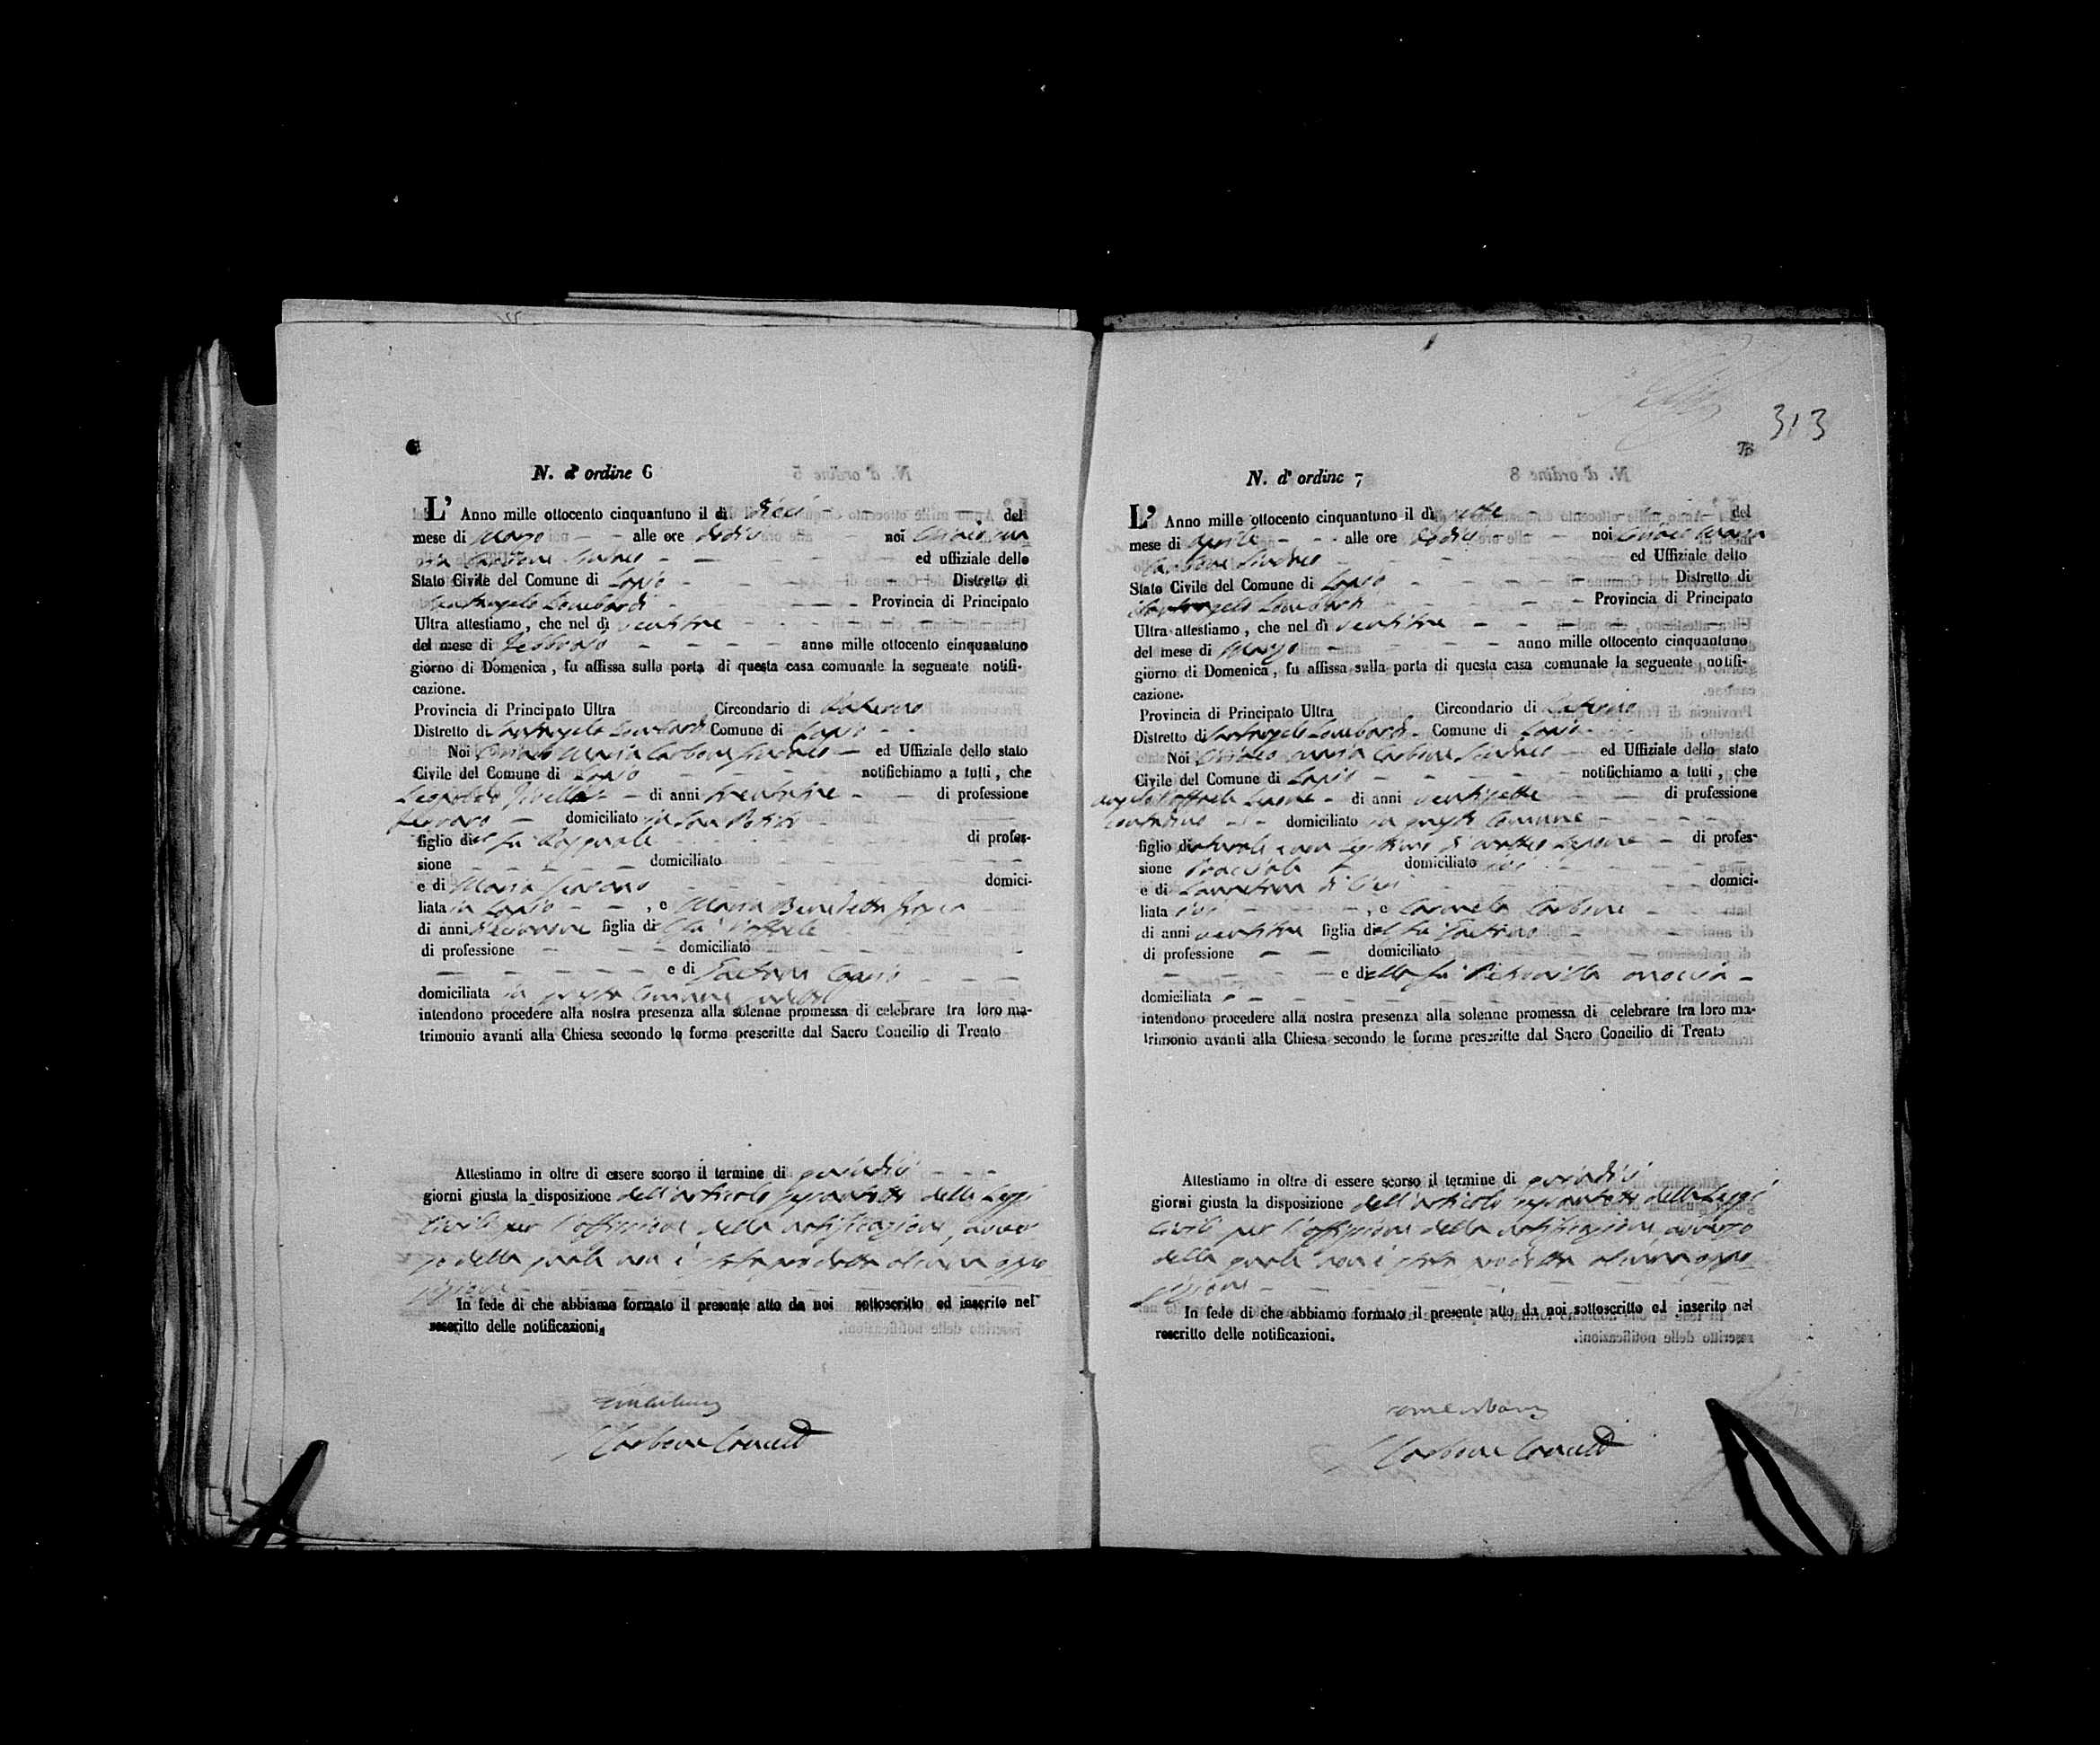 6
N. d' ordine 6
L' Anno mille ottocento cinquantuno il dì dieci del
mese di Marzo alle ore dodici noi Ciriaco Ma
ria Carbone Sindaco ed uffiziale dello
Stato Civile del Comune di Lapio Distretto di
Santangelo Lombardi Provincia di Principato
Ultra attestiamo, che nel dì ventitre
del mese di Febbraio anno mille ottocento cinquantuno
giorno di Domenica, fu affissa sulla porta di questa casa comunale la seguente notifi-
cazione.
Provincia di Principato Ultra Circondario di Paterno
Distretto di Santangelo Lombardi Comune di Lapio
Noi Ciriaco Maria Carbone Sindaco ed Uffiziale dello stato
Civile del Comune di Lapio notifichiamo a tutti, che
Leopoldo di anni trentatre di professione
Ferraro domiciliato in San Potito
figlio del fu Pasquale di profes-
sione domiciliato
e di Maria domici-
liata in Lapio, e Maria Benedetta
di anni figlia del fu Raffaele
di professione domiciliato
e di Gaetana
domiciliata in questo Comune
intendono procedere alla nostra presenza alla solenne promessa di celebrare tra loro ma-
trimonio avanti alla Chiesa secondo le forme prescritte dal Sacro Concilio di Trento
Attestiamo in oltre di essere scorso il termine di quindici
giorni giusta la disposizione dell'articolo sessantotto delle Leggi
Civili per l'affissione della notificazione, avver
so della quale non è stata prodotta alcuna oppo
sizione
In fede di che abbiamo formato il presente atto da noi sottoscritto ed inserito nel
rescritto delle notificazioni.
Carbone
313
N. d' ordine 7
L' Anno mille ottocento cinquantuno il dì sette del
mese di Aprile alle ore dodici noi Ciriaco Maria
Carbone Sindaco ed Uffiziale dello
Stato Civile del Comune di Lapio Distretto di
Santangelo Lombardi Provincia di Principato
Ultra attestiamo, che nel dì ventitre
del mese di Marzo anno mille ottocento cinquantuno
giorno di Domenica, fu affissa sulla porta di questa casa comunale la seguente notifi-
cazione.
Provincia di Principato Ultra Circondario di Paterno
Distretto di Santangelo Lombardi Comune di Lapio
Noi Ciriaco Maria Carbone Sindaco ed Uffiziale dello stato
Civile del Comune di Lapio notifichiamo a tutti, che
Angelo Raffaele di anni ventisette di professione
Contadino domiciliato in questo Comune
figlio di naturale e non legittimo di di profes-
sione Bracciale domiciliato ivi
e di domici-
liata ivi, e Carmela Carbone
di anni ventitre figlia del fu Gaetano
di professione domiciliato
e della fu Petronilla
domiciliata
intendono procedere alla nostra presenza alla solenne promessa di celebrare tra loro ma-
trimonio avanti alla Chiesa secondo le forme prescritte dal Sacro Concilio di Trento
Attestiamo in oltre di essere scorso il termine di quindici
giorni giusta la disposizione dell'articolo sessantotto delle Leggi
Civili per l'affissione della notificazione, avverso
della quale non è stata prodotta alcuna oppo
sizione
In fede di che abbiamo formato il presente atto da noi sottoscritto ed inserito nel
rescritto delle notificazioni.
Carbone